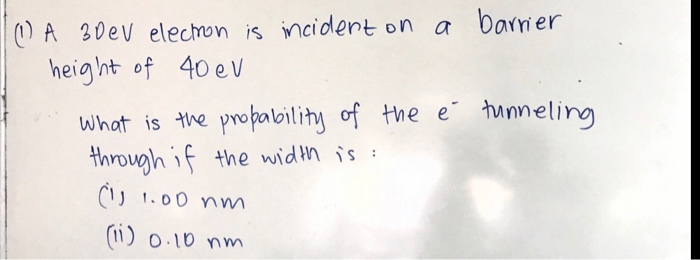 (1) A 30eV electron is incident on a barrier
height of 40eV
What is the probability of the e⁻ tunneling
through if the width is :
(i) 1.00 nm
(ii) 0.10 nm